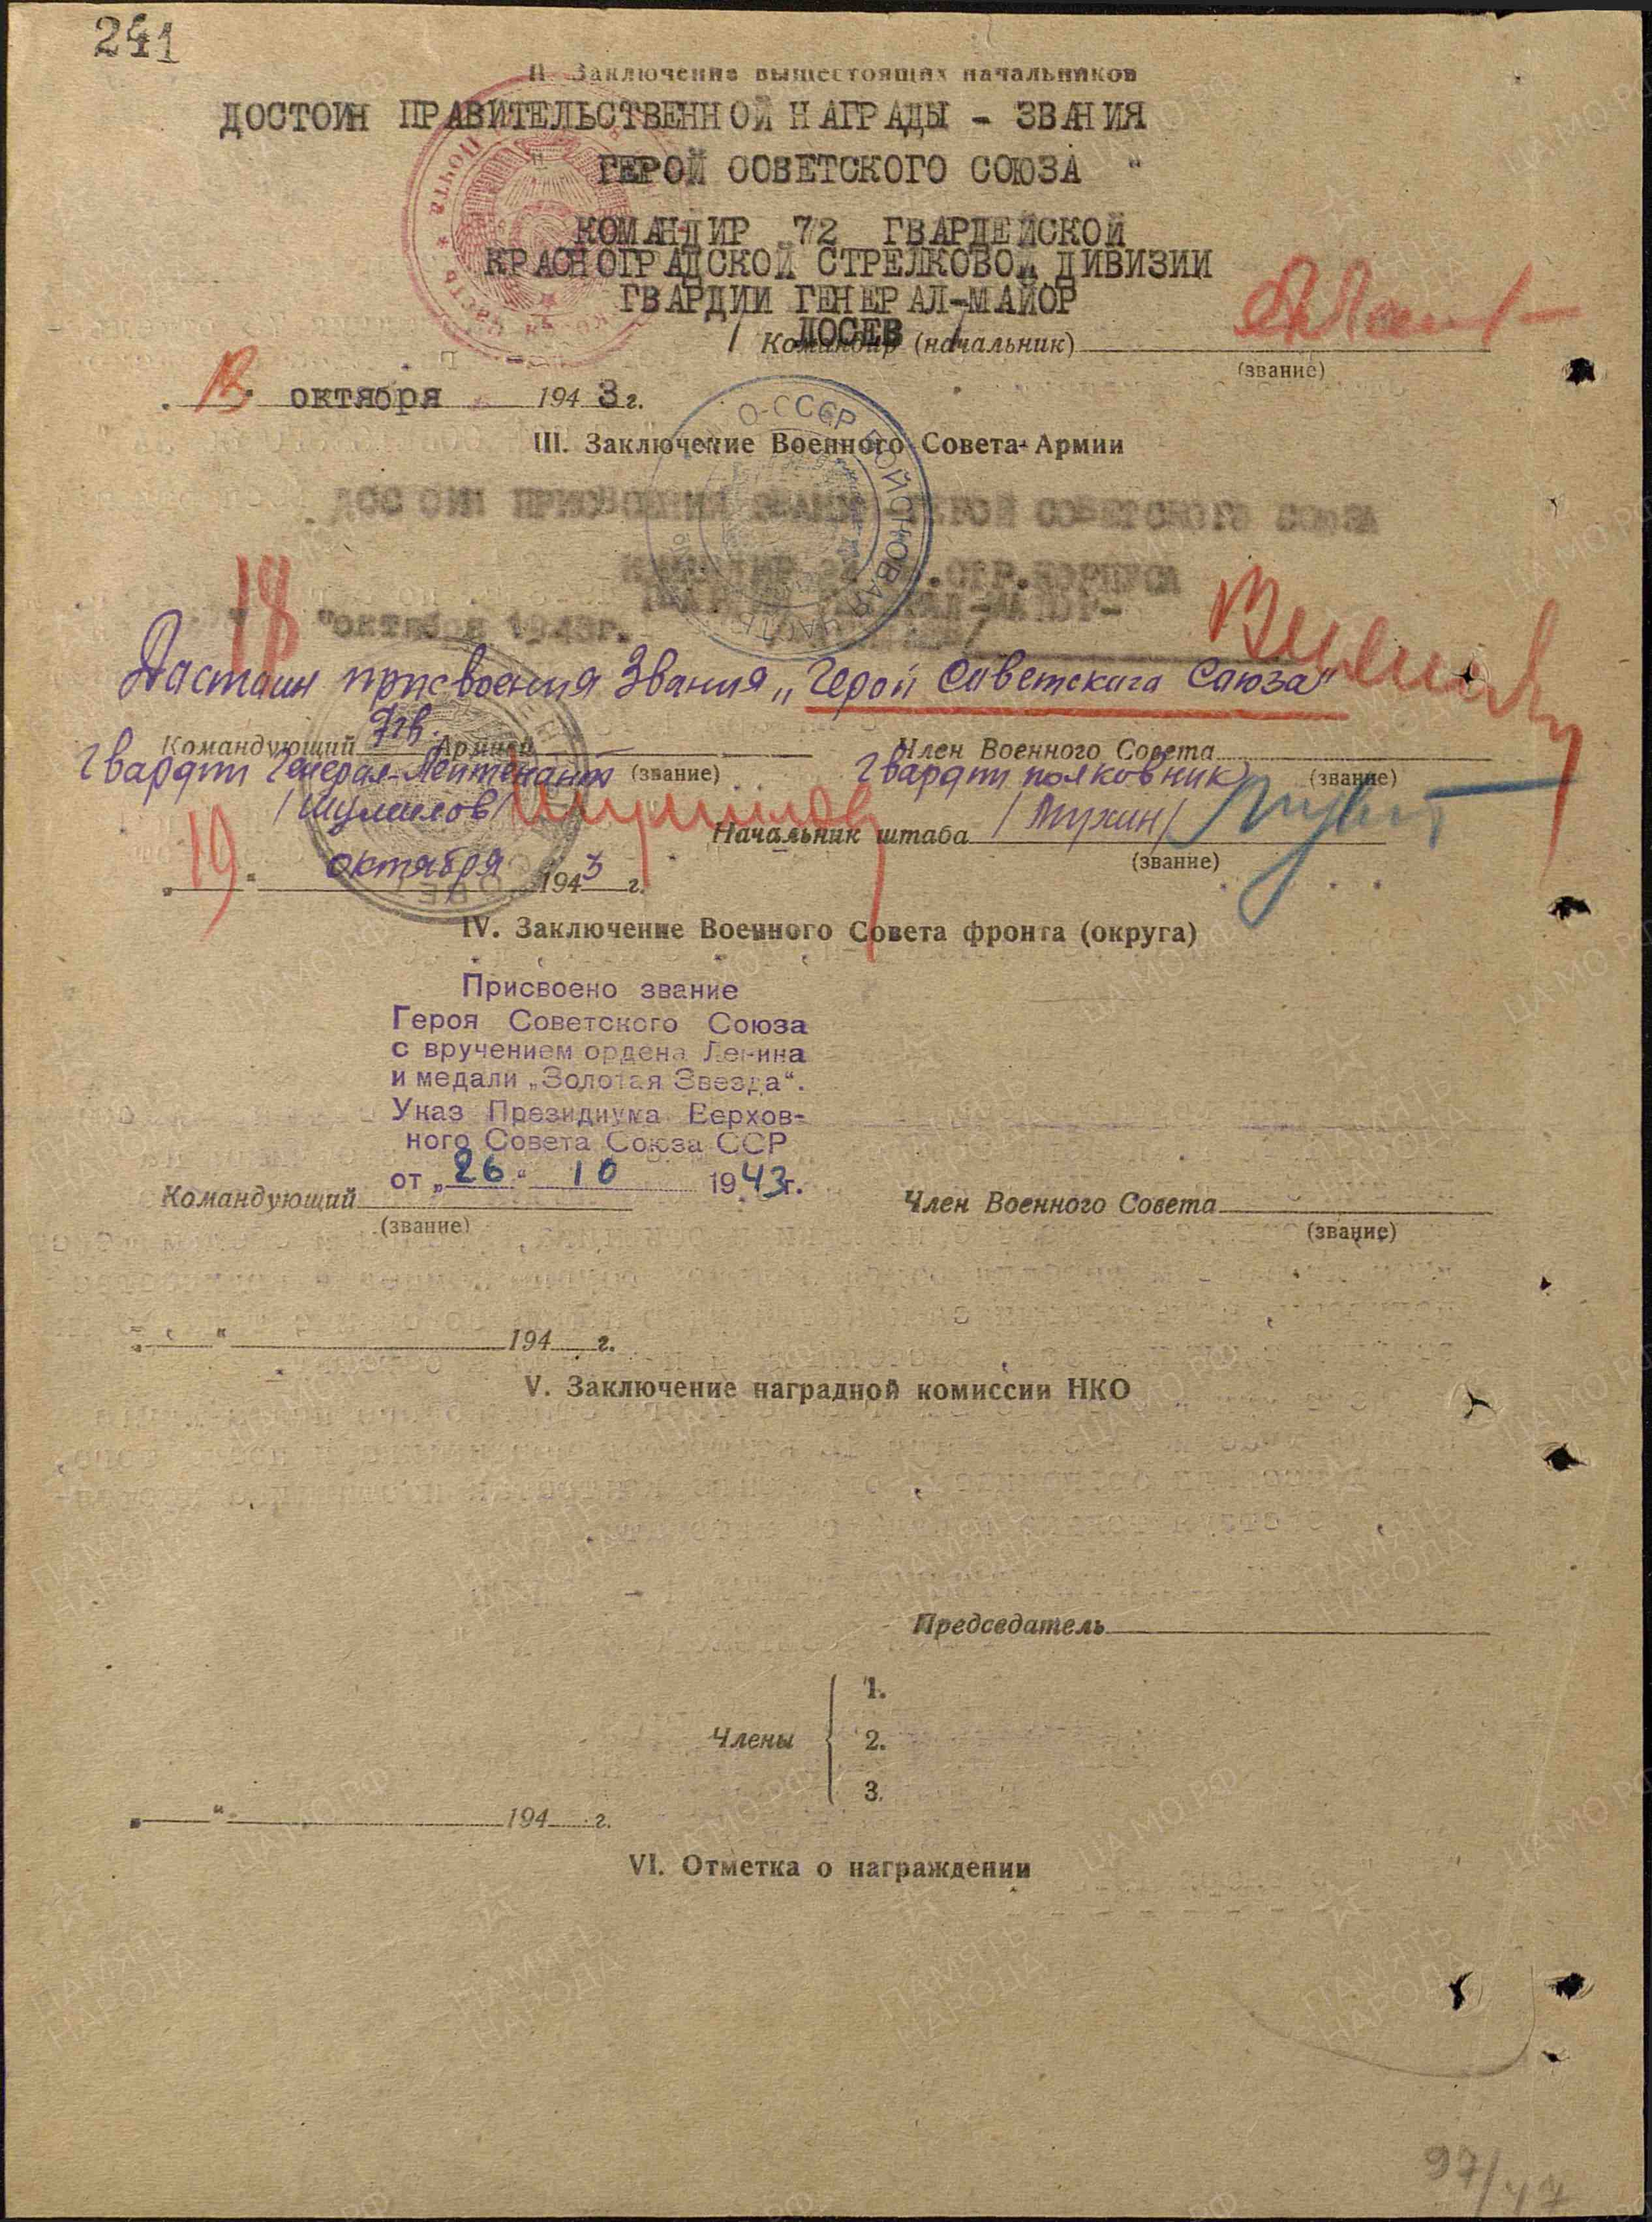 241
II. Заключение вышестоящих начальников
ДОСТОИН ПРАВИТЕЛЬСТВЕННОЙ НАГРАДЫ - ЗВАНИЯ
"
ГЕРОЙ СОВЕТСКОГО СОЮЗА "
КОМАНДИР 72 ГВАРДЕЙСКОЙ
КРАСНОГРАДСКОЙ СТРЕЛКОВОЙ ДИВИЗИИ
ГВАРДИИ ГЕНЕРАЛ-МАЙОР
/ ЛОСЕВ /
Командир (начальник)
(звание)
" 13 " октября 1943 г.
III. Заключение Военного Совета Армии
ДОСТОИН ПРИСВОЕНИЯ ЗВАНИЯ ГЕРОЙ СОВЕТСКОГО СОЮЗА
КОМАНДИР СТР. КОРПУСА
ГЕНЕРАЛ-МАЙОР-
18 "октября 1943г.
Дастоин присвоения Звания „Герой Саветскага Саюза"
Командующий 7 гв. Армией
Член Военного Совета
Гвардии Генерал-Лейтенант (звание)
Гвардии полковник (звание)
/Шумилов/
Шумилов
Начальник штаба /Мухин/
(звание)
„19" октября 1943 г.
IV. Заключение Военного Совета фронта (округа)
Присвоено звание
Героя Советского Союза
с вручением ордена Ленина
и медали „Золотая Звезда".
Указ Президиума Верхов-
ного Совета Союза ССР
от „26" 10 1943г.
Командующий
(звание)
Член Военного Совета
(звание)
„ " 194 г.
V. Заключение наградной комиссии НКО
Председатель
Члены
1.
2.
3.
„ " 194 г.
VI. Отметка о награждении
97/47
ПАМЯТЬ НАРОДА
ЦА МО РФ